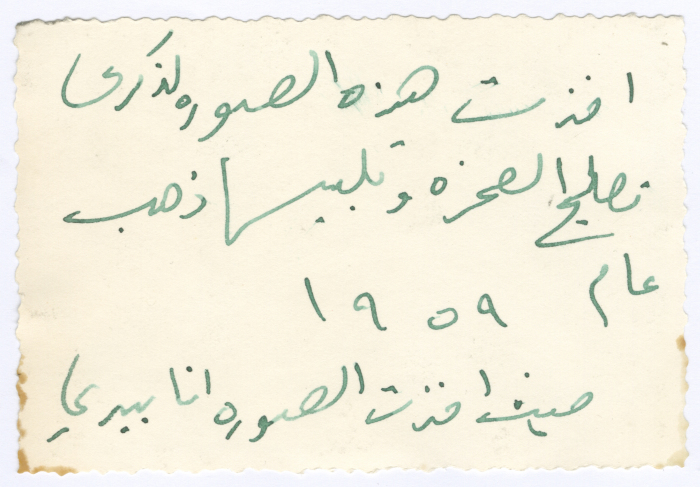 اخذت هذه الصوره لذكرى
تصليح الصخره وتلبيسها ذهب
عام
١٩٥٩
حيث اخذت الصوره انا بيدي